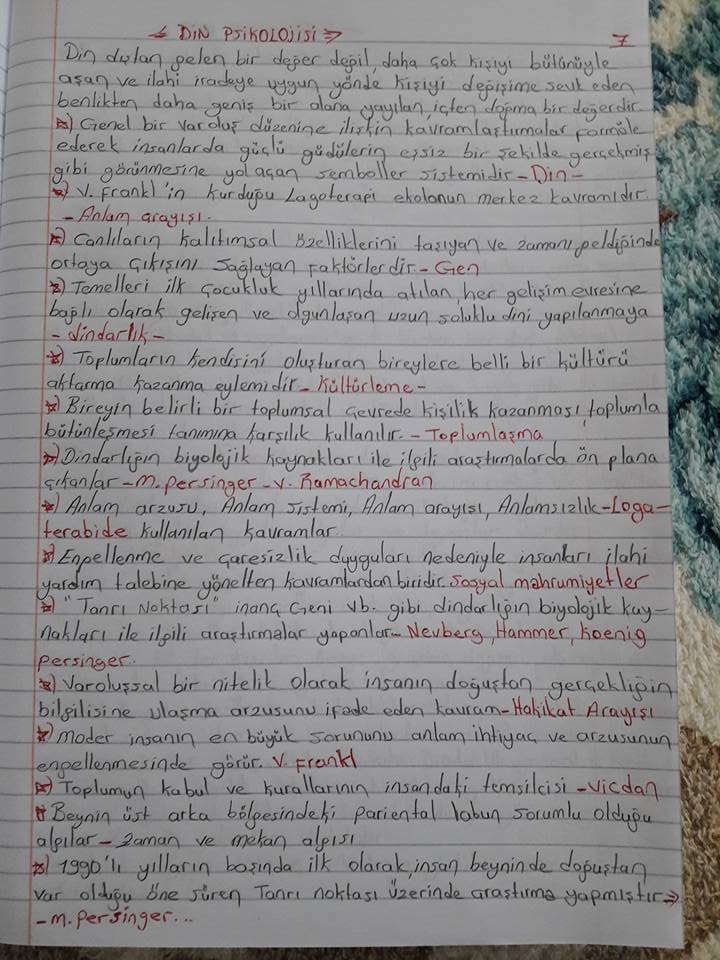 DİN PSİKOLOJİSİ 7
Din dıştan gelen bir değer değil, daha çok kişiyi bütünüyle
aşan ve ilahi iradeye uygun yönde kişiyi değişime sevk eden
benlikten daha geniş bir alana yayılan, içten doğma bir değerdir.
Genel bir varoluş düzenine ilişkin kavramlaştırmalar formüle
ederek insanlarda güçlü güdülerin eşsiz bir şekilde gerçekmiş
gibi görünmesine yol açan semboller sistemidir - Din -
V. Frankl'in kurduğu Lagoterapi ekolonun merkez kavramıdır.
- Anlam arayışı.
Canlıların kalıtımsal özelliklerini taşıyan ve zamanı geldiğinde
ortaya çıkışını sağlayan faktörlerdir - Gen
Temelleri ilk çocukluk yıllarında atılan, her gelişim evresine
bağlı olarak gelişen ve olgunlaşan uzun soluklu dini yapılanmaya
- dindarlık -
Toplumların kendisini oluşturan bireylere belli bir kültürü
aktarma kazanma eylemidir - Kültürleme -
Bireyin belirli bir toplumsal çevrede kişilik kazanması, toplumla
bütünleşmesi tanımına karşılık kullanılır. - Toplumlaşma
Dindarlığın biyolojik kaynakları ile ilgili araştırmalarda ön plana
çıkanlar - M. Persinger - V. Ramachandran
Anlam arzusu, Anlam sistemi, Anlam arayışı, Anlamsızlık - Loga-
terabide kullanılan kavramlar.
Enpellenme ve çaresizlik duyguları nedeniyle insanları ilahi
yardım talebine yönelten kavramlardan biridir. Sosyal mahrumiyetler
"Tanrı Noktası" inanç Geni vb. gibi dindarlığın biyolojik kay-
nakları ile ilgili araştırmalar yapanlar - Nevberg, Hammer, Koenig
Persinger.
Varoluşsal bir nitelik olarak insanın doğuştan gerçekliğin
bilgilisine ulaşma arzusunu ifade eden kavram - Hakikat Arayışı
Moder insanın en büyük sorununu anlam ihtiyaç ve arzusunun
engellenmesinde görür. V. Frankl
Toplumun kabul ve kurallarının insandaki temsilcisi - Vicdan
Beynin üst arka bölgesindeki pariental lobun sorumlu olduğu
algılar - Zaman ve mekan algısı
1990'lı yılların başında ilk olarak, insan beyninde doğuştan
var olduğu öne süren Tanrı noktası üzerinde araştırma yapmıştır ⇒
- M. Persinger...